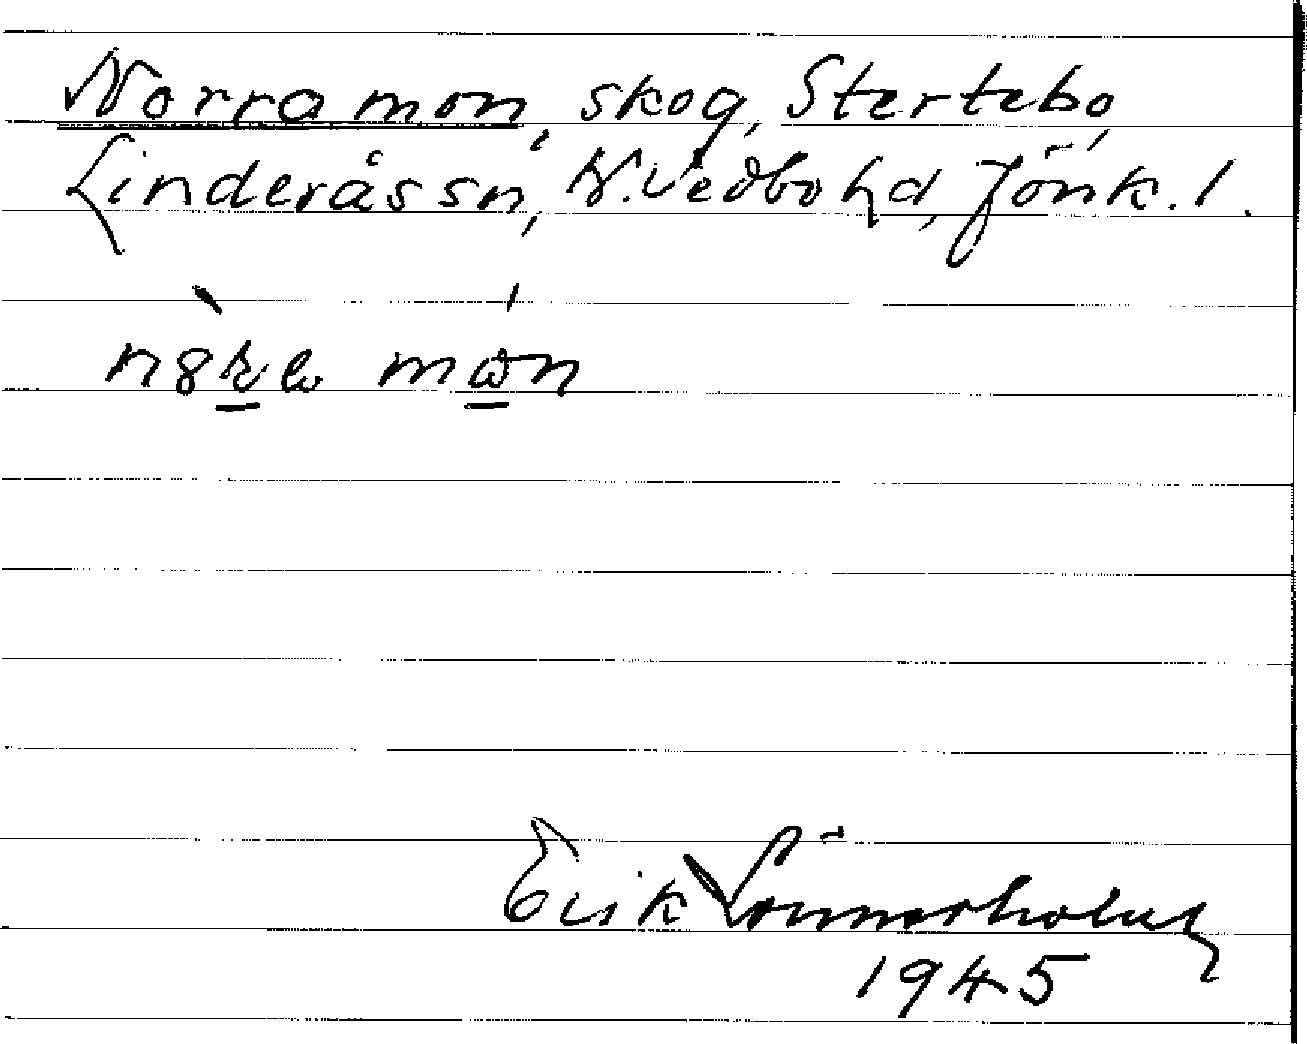 Norra mon, skog, Stertebo,
Linderås sn, N. Vedbo hd, Jönk. l.
Erik Lönnerholm
1945